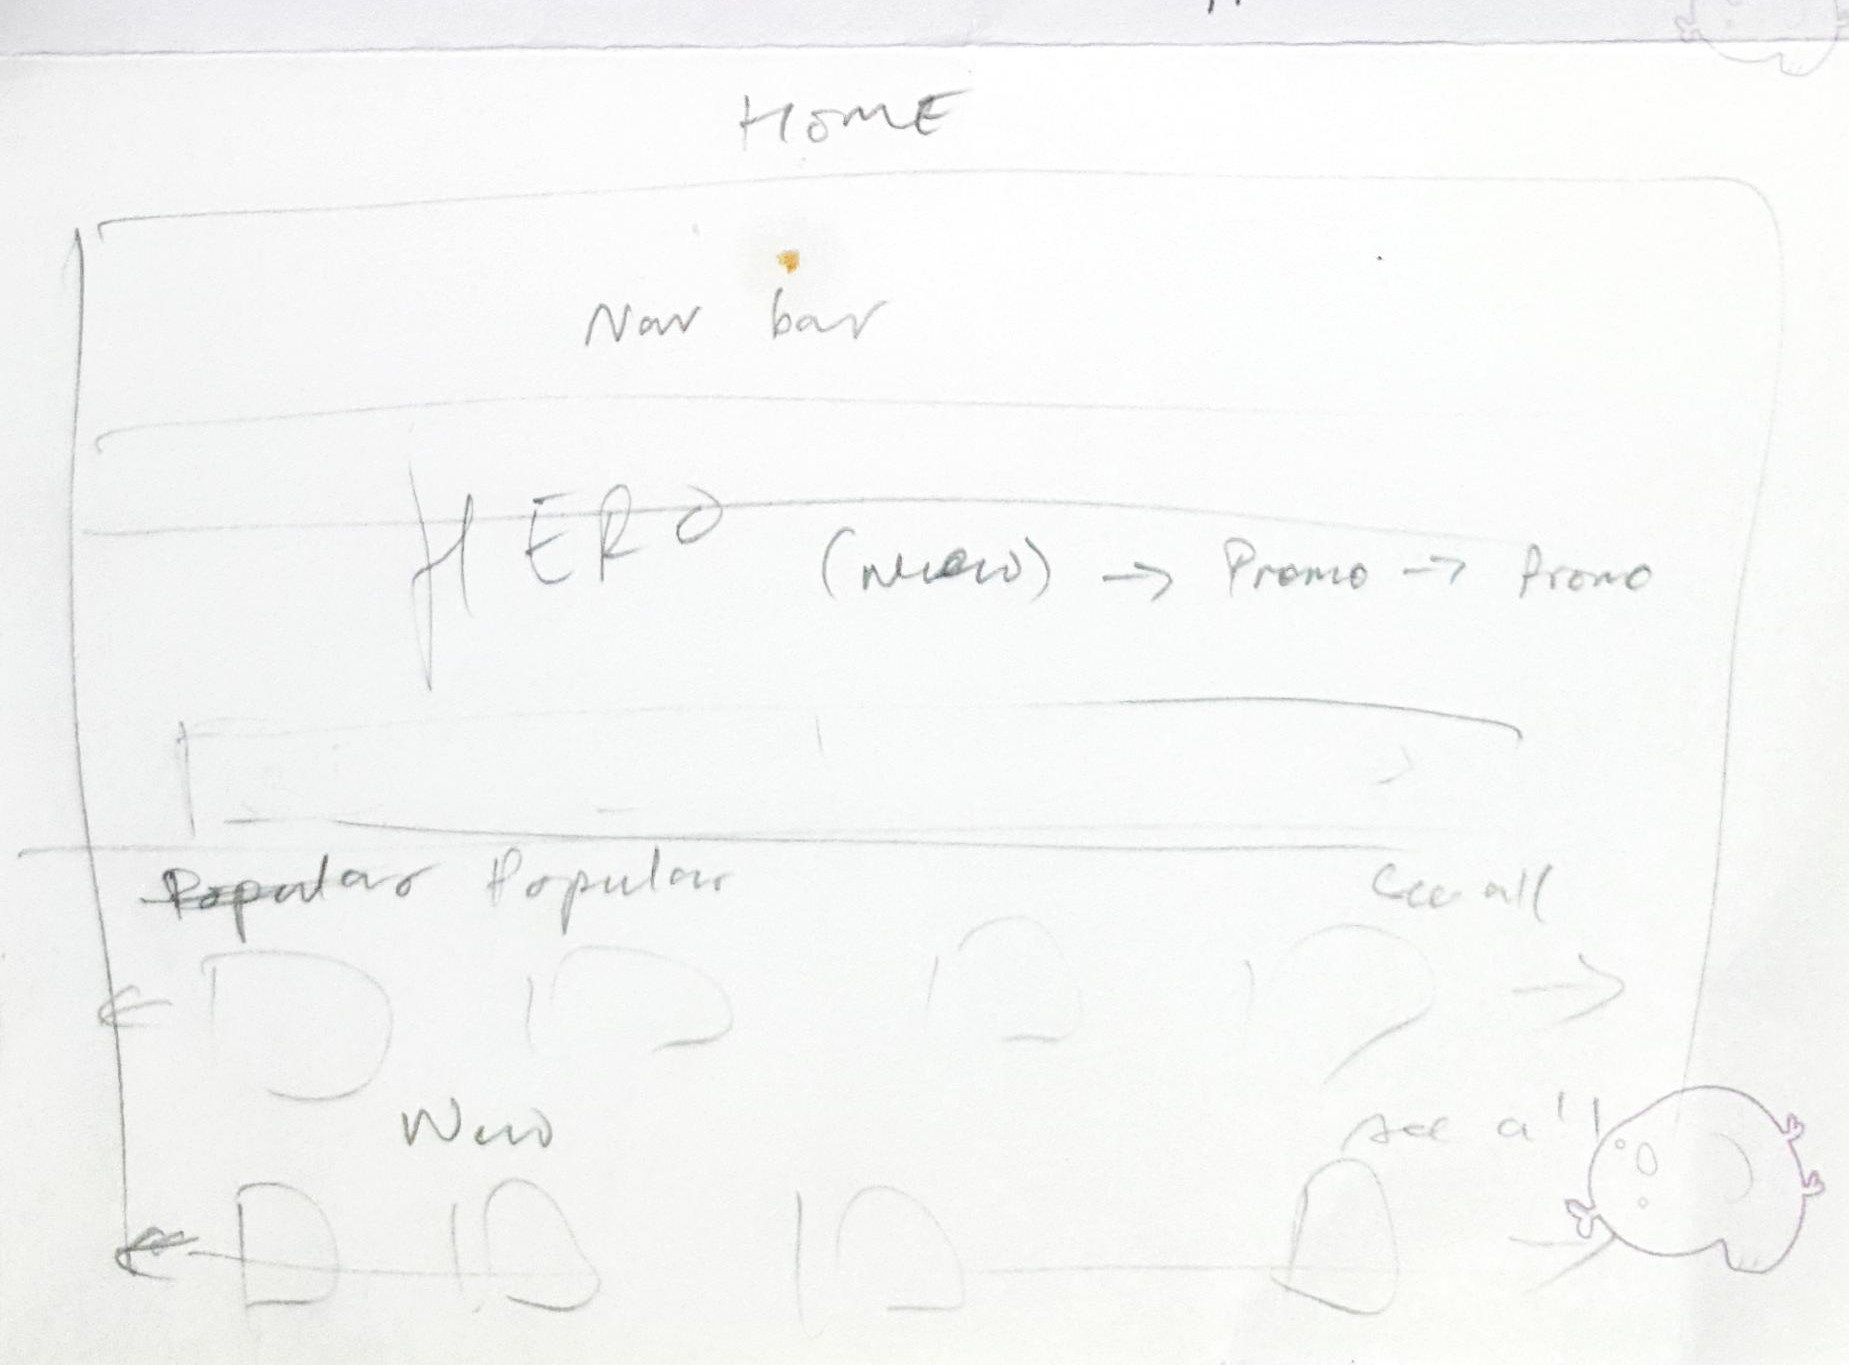 HOME
Nav bar
HERO (new) → Promo → Promo
Popular Popular See all
New see all